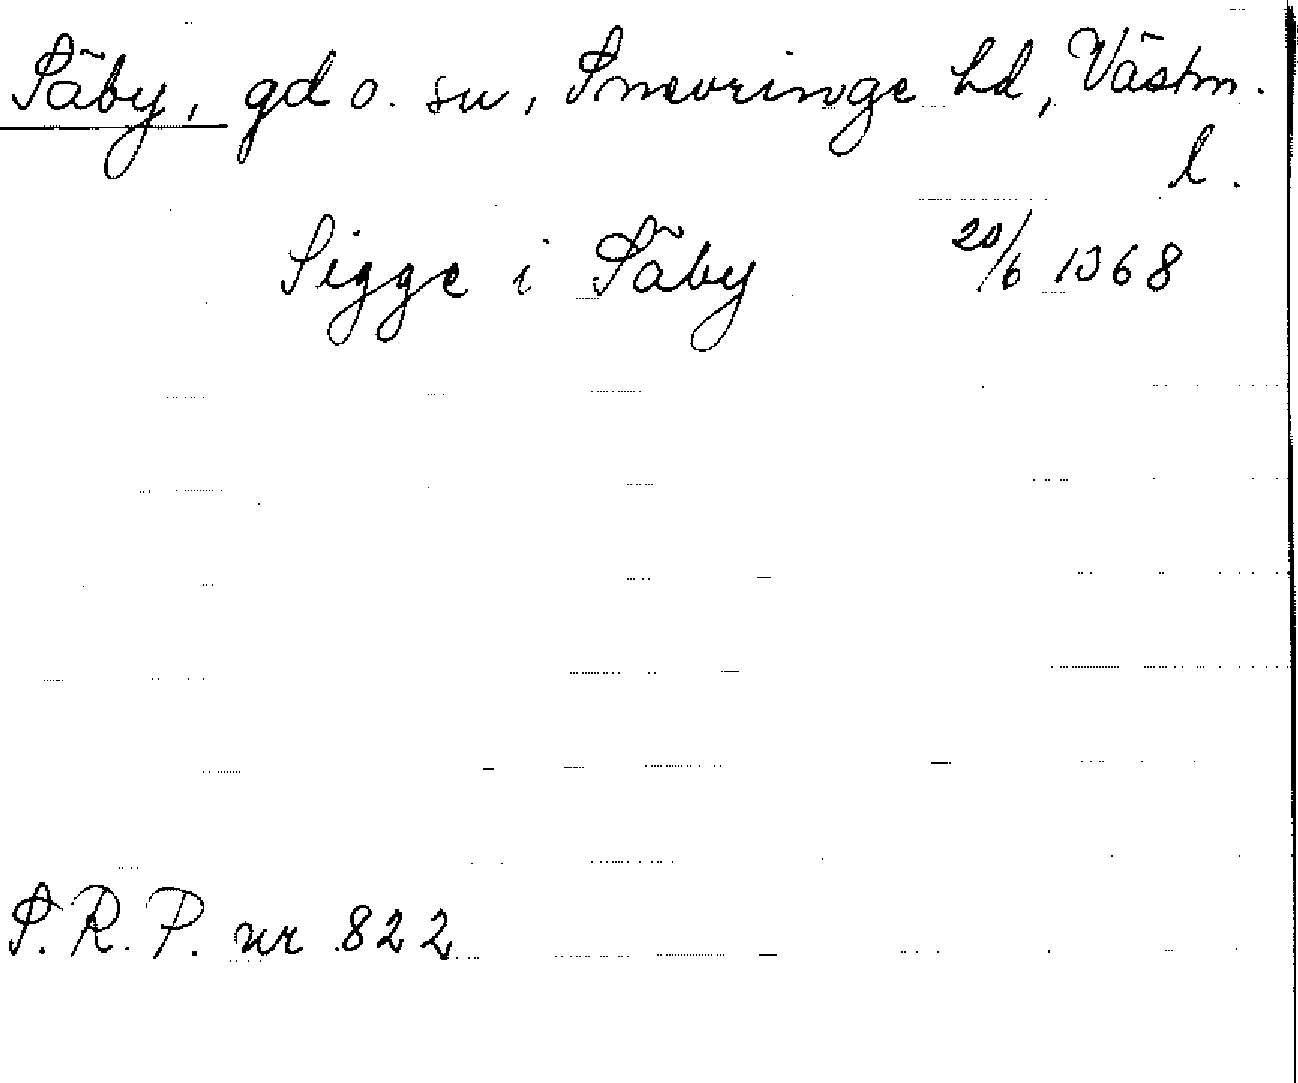 Säby, gd o. sn, Snevringe hd, Västm.
l.
Sigge i Säby 20/6 1368
S.R.P. nr 822